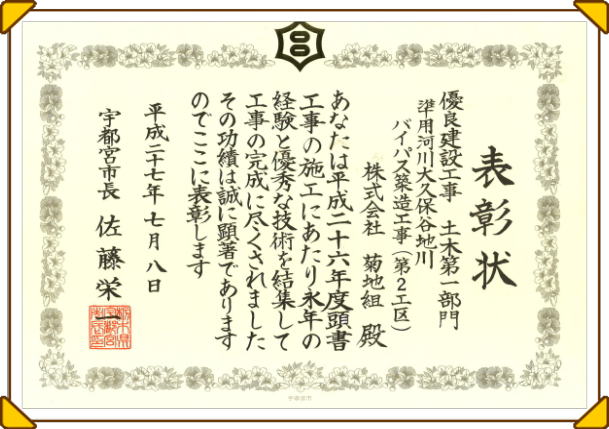 表彰状
優良建設工事 土木第一部門
準用河川大久保谷地川
バイパス築造工事(第2工区)
株式会社 菊地組 殿
あなたは平成二十六年度頭書
工事の施工にあたり永年の
経験と優秀な技術を結集して
工事の完成に尽くされました
その功績は誠に顕著であります
のでここに表彰します
平成二十七年七月八日
宇都宮市長 佐藤栄一
宇都宮市